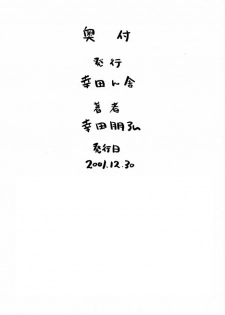 奥付
発行
幸田ん舎
著者
幸田朋弘
発行日
2001.12.30